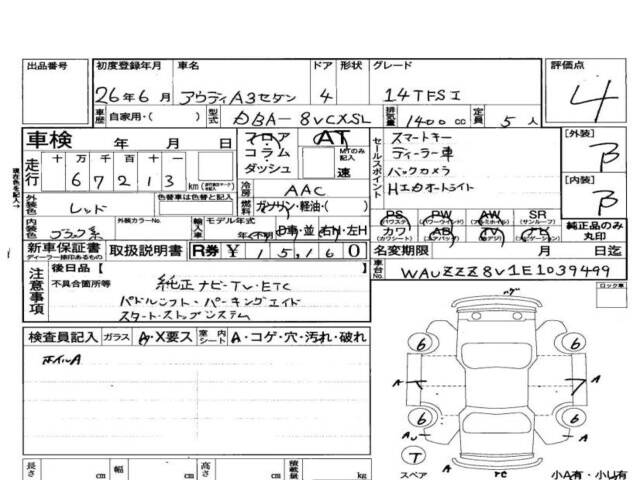 出品番号 初度登録年月 車名 ドア 形状 グレード 評価点
26年6月 アウディA3セダン 4 14TFSI 4
車歴 自家用・( ) 型式 DBA-8VCXSL 排気量 1400cc 定員 5人
車検 年 月 日 フロア AT
コラム MTのみ記入
ダッシュ 速
走行 十万千百十 67213 km
冷房 AAC
外装色 レッド 色替車は色替と記入
燃料 ガソリン・軽油・( )
内装色 ブラック系 外装カラーNo. 輸入車 モデル年式 年(不明) D車・並 右H・左H
セールスポイント
スマートキー
ディーラー車
バックカメラ
オートライト
[外装] B
[内装] B
PS PW AW SR
(パワステ) (パワーウィンド) (アルミホイル) (サンルーフ)
カワ AB TV
(カワシート) (エアバッグ)
純正品のみ丸印
新車保証書 取扱説明書 R券 ¥15,160
ディーラー捺印あるもの
名変期限 月 日迄
車台No. WAUZZZ8V1E1039499
注意事項
後日品[ ]
不具合箇所等
純正ナビ・TV・ETC
パドルシフト・パーキングエイド
スタートストップシステム
ロック車
検査員記入 ガラス A・X要ス 室内シート A・コゲ・穴・汚れ・破れ
ホイルA
6 6
A A
6 6
T A
スペア
小A有・小U有
長さ cm 幅 cm 高さ cm 積載量 kg
現在色を記入→